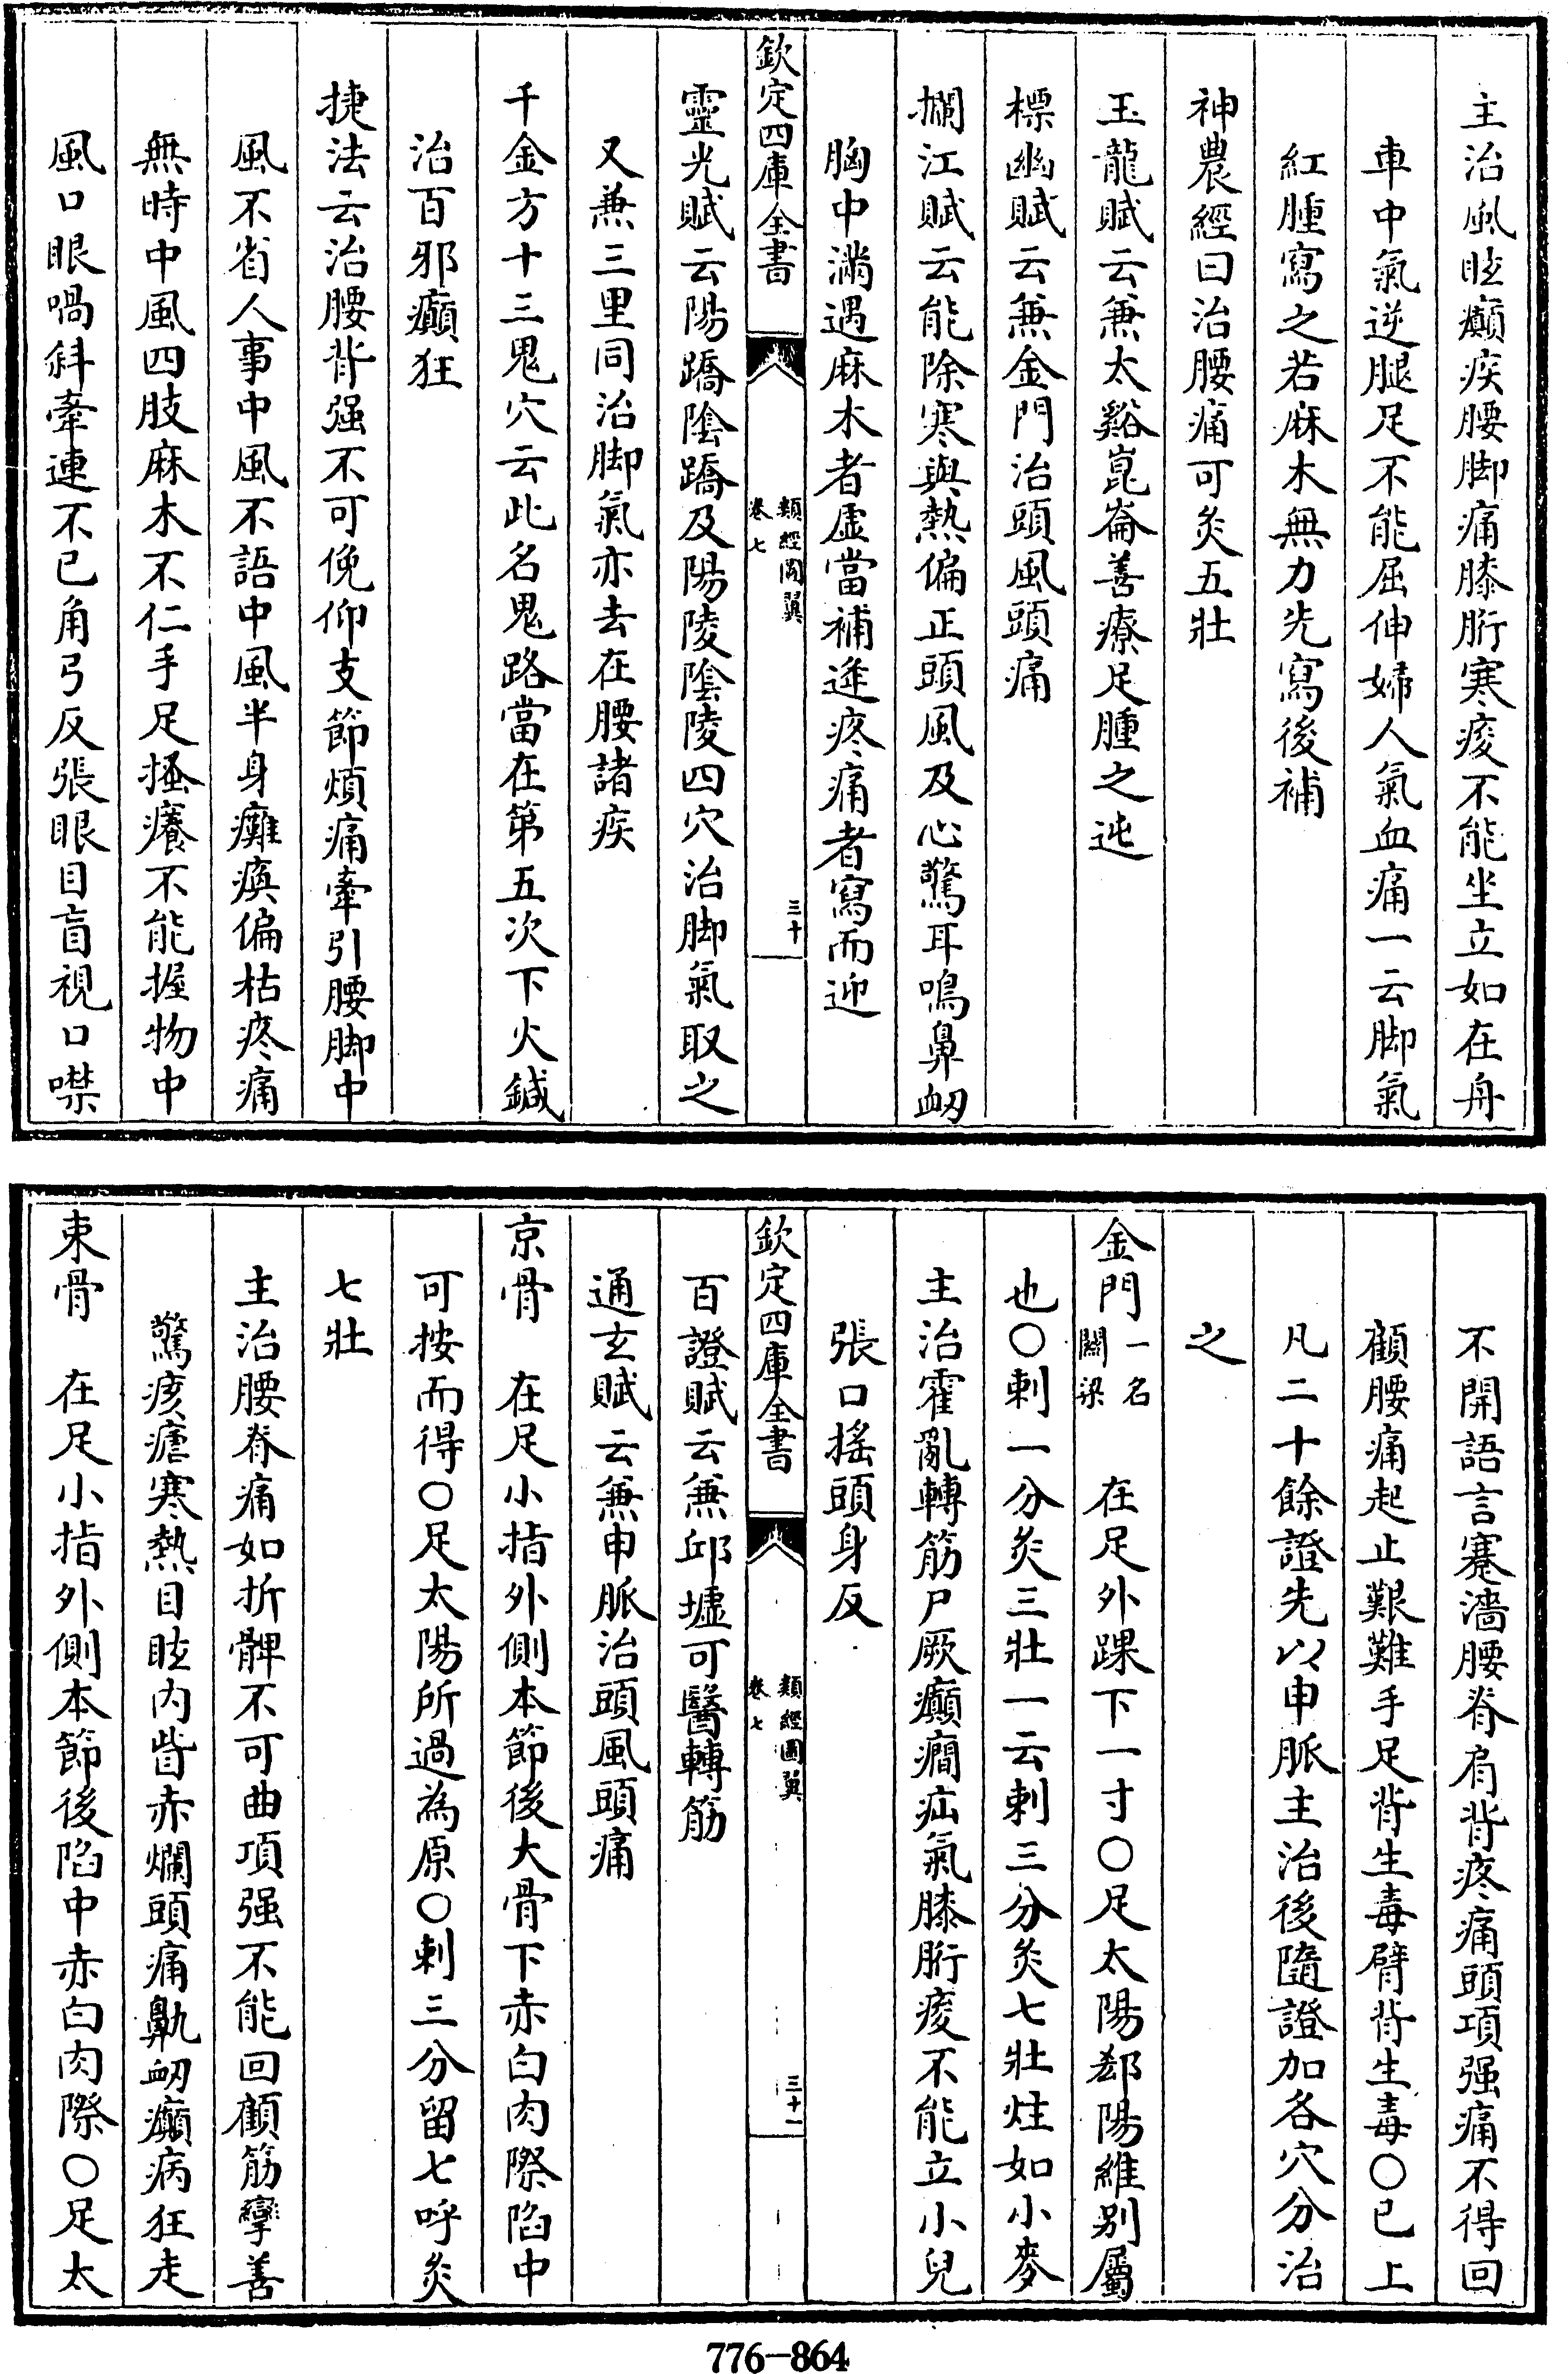 主治風眩癲疾腰脚痛膝胻寒痠不能坐立如在舟
車中氣逆腿足不能屈伸婦人氣血痛一云脚氣
紅腫寫之若麻木無力先寫後補
神農經曰治腰痛可灸五壯
玉龍賦云兼太谿崑崙善療足腫之迍
標幽賦云兼金門治頭風頭痛
攔江賦云能除寒與熱偏正頭風及心驚耳鳴鼻衂
胸中滿遇麻木者虛當補逢疼痛者寫而迎
欽定四庫全書
類經圖翼
卷七
三十
靈光賦云陽蹻陰蹻及陽陵陰陵四穴治脚氣取之
又兼三里同治脚氣亦去在腰諸疾
千金方十三鬼穴云此名鬼路當在第五次下火鍼
治百邪癲狂
捷法云治腰背强不可俛仰支節煩痛牽引腰脚中
風不省人事中風不語中風半身癱瘓偏枯疼痛
無時中風四肢麻木不仁手足搔癢不能握物中
風口眼喎斜牽連不已角弓反張眼目盲視口噤
不開語言蹇澀腰脊肩背疼痛頭項强痛不得回
顧腰痛起止艱難手足背生毒臂背生毒○已上
凡二十餘證先以申脈主治後隨證加各穴分治
之
金門一名關梁 在足外踝下一寸○足太陽郄陽維别屬
也○刺一分灸三壯一云刺三分灸七壯炷如小麥
主治霍亂轉筋尸厥癲癇疝氣膝胻痠不能立小兒
張口搖頭身反
欽定四庫全書
類經圖翼
卷七
三十一
百證賦云兼邱墟可醫轉筋
通玄賦云兼申脈治頭風頭痛
京骨 在足小指外側本節後大骨下赤白肉際陷中
可按而得○足太陽所過為原○刺三分留七呼灸
七壯
主治腰脊痛如折髀不可曲項强不能回顧筋攣善
驚痎瘧寒熱目眩內眥赤爛頭痛鼽衂癲病狂走
束骨 在足小指外側本節後陷中赤白肉際○足太
776-864